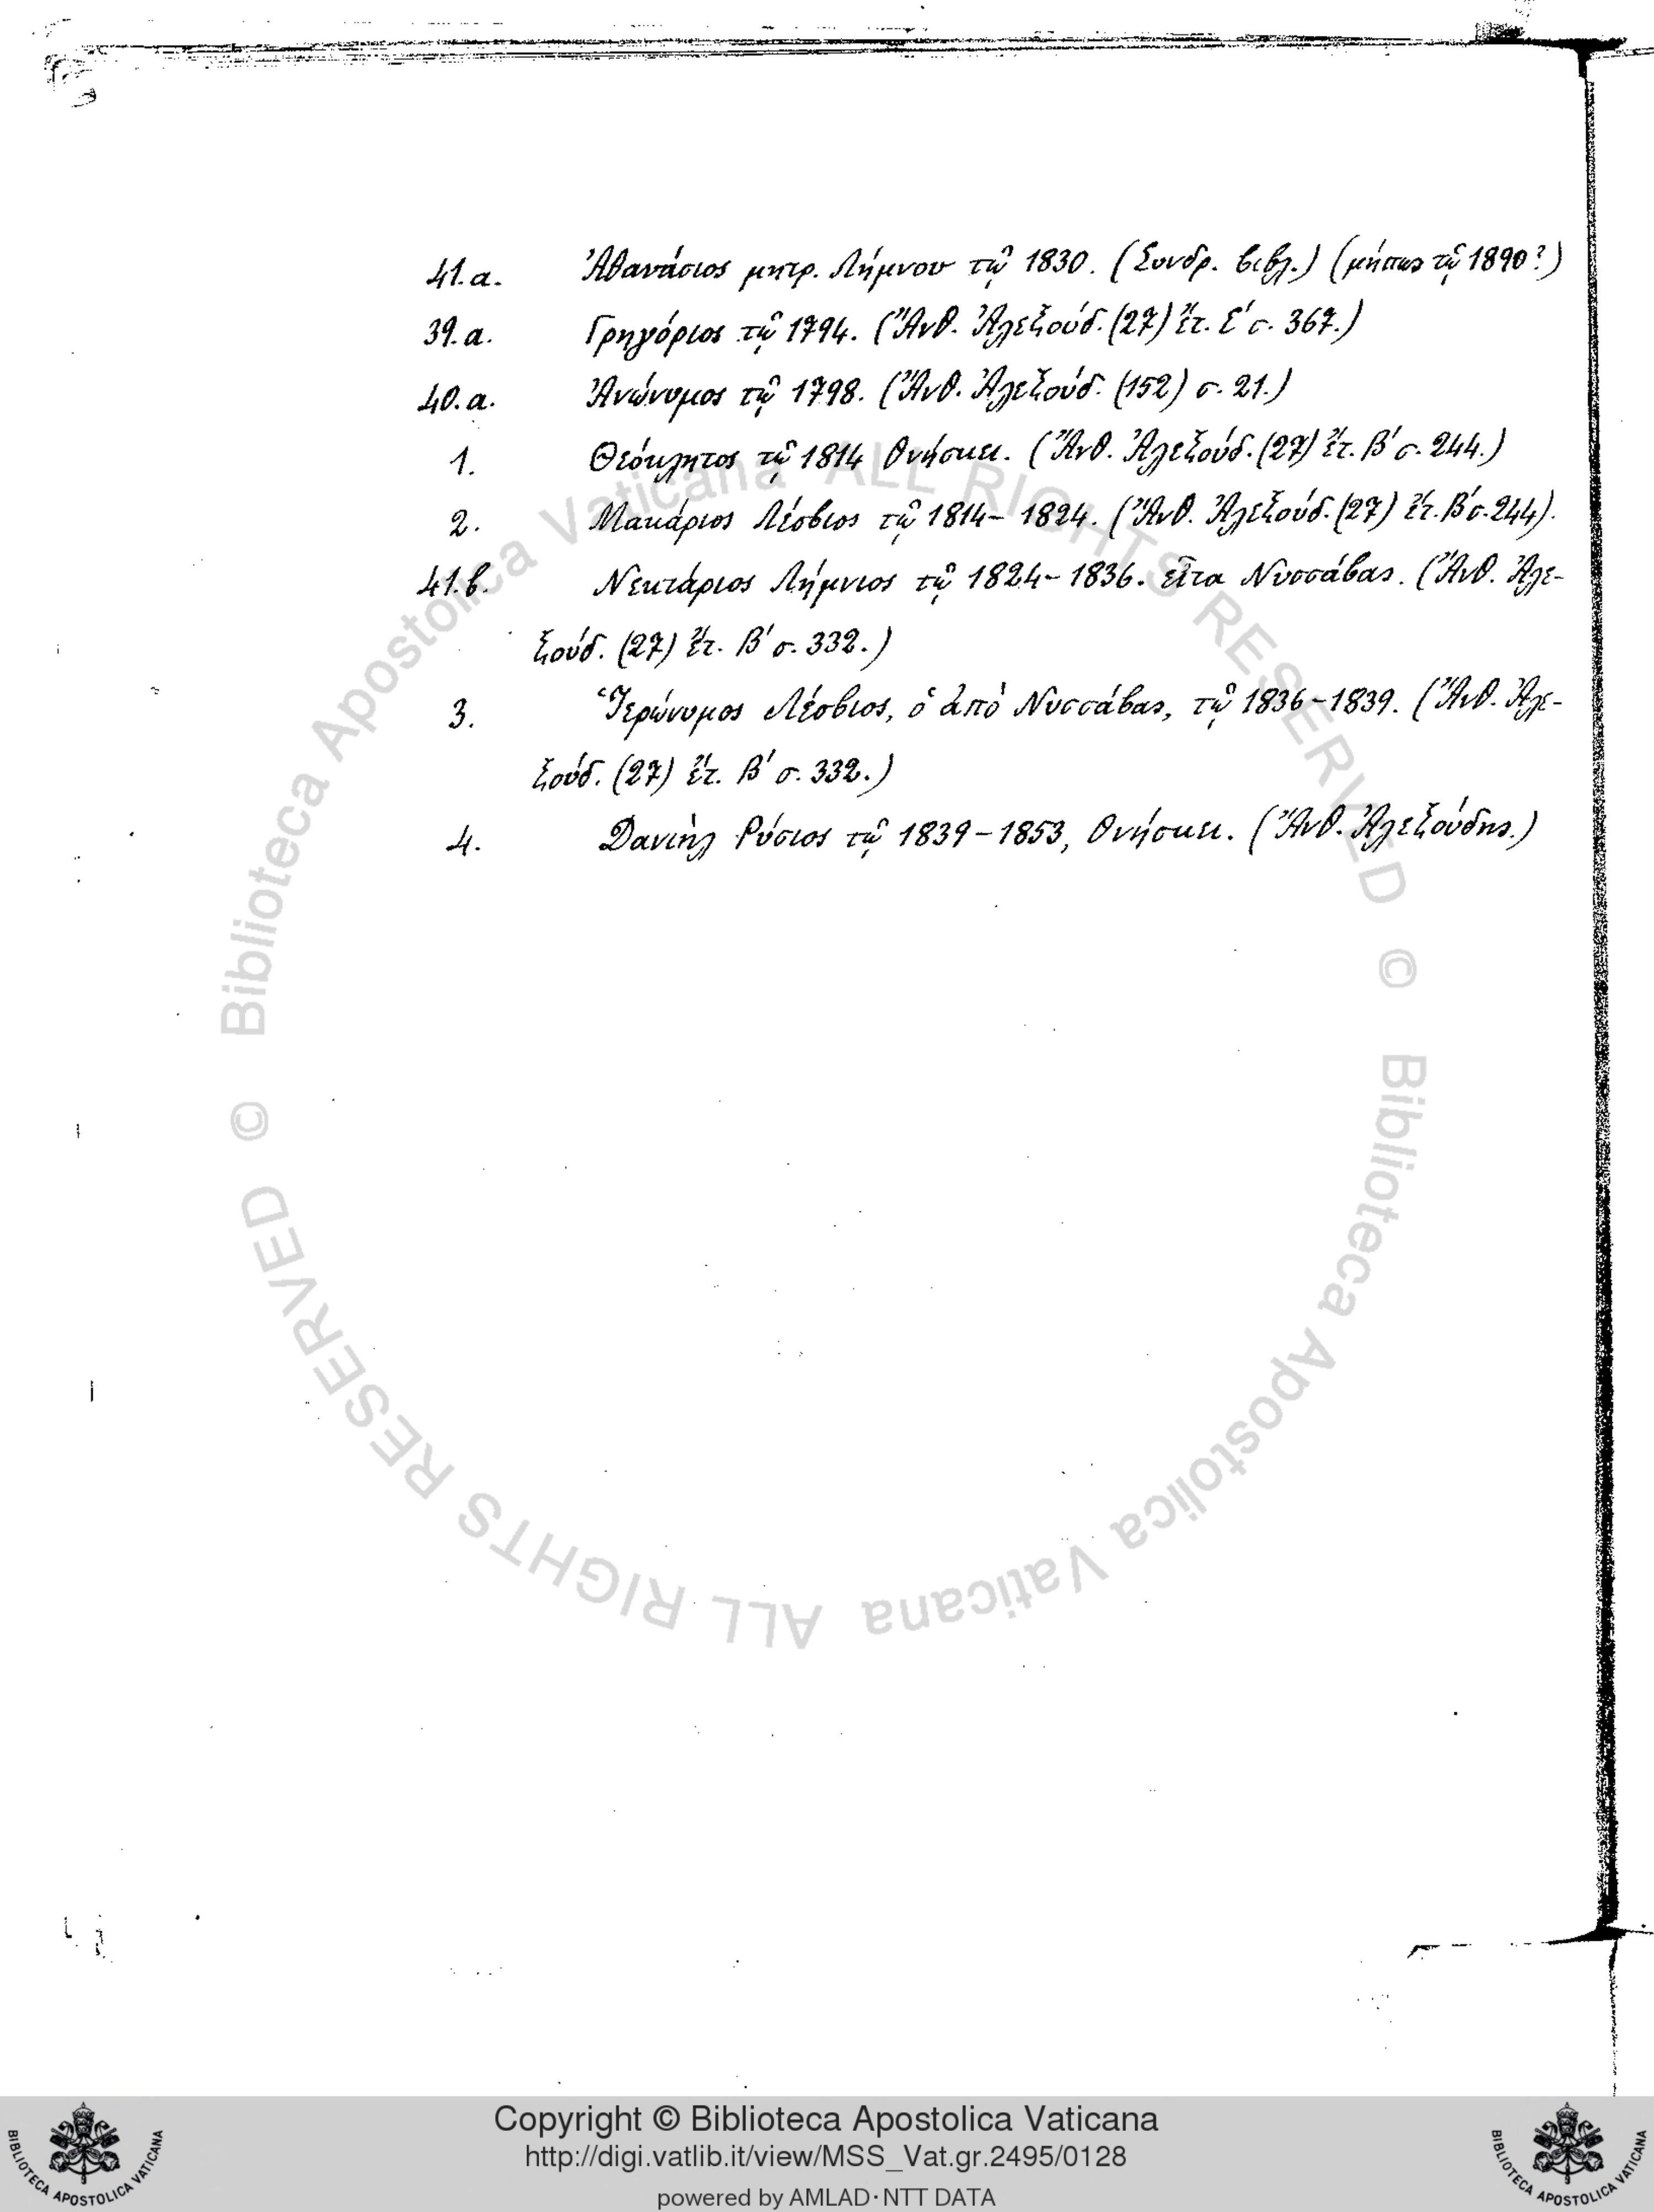 41.α. Ἀθανάσιος μητρ. Λήμνου τῷ 1830. (Συνδρ. βιβλ.) (μήπως τῷ 1890?)
39.α. Γρηγόριος τῷ 1794. (Ἄνθ. Ἀλεξούδ. (27) ἔτ. Ε΄ σ. 367.)
40.α. Ἀνώνυμος τῷ 1798. (Ἄνθ. Ἀλεξούδ. (152) σ. 21.)
1. Θεόκλητος τῷ 1814 θνήσκει. (Ἄνθ. Ἀλεξούδ. (27) ἔτ. Β΄ σ. 244.)
2. Μακάριος Λέσβιος τῷ 1814-1824. (Ἄνθ. Ἀλεξούδ. (27) ἔτ. Β΄ σ. 244).
41.β. Νεκτάριος Λήμνιος τῷ 1824-1836. εἶτα Νυσσάβας. (Ἄνθ. Ἀλε-
ξούδ. (27) ἔτ. Β΄ σ. 332.)
3. Ἱερώνυμος Λέσβιος, ὁ ἀπὸ Νυσσάβας, τῷ 1836-1839. (Ἄνθ. Ἀλε-
ξούδ. (27) ἔτ. Β΄ σ. 332.)
4. Δανιὴλ Ρύσιος τῷ 1839-1853, θνήσκει. (Ἄνθ. Ἀλεξούδης.)
© Biblioteca Apostolica Vaticana ALL RIGHTS RESERVED
© Biblioteca Apostolica Vaticana ALL RIGHTS RESERVED
Copyright © Biblioteca Apostolica Vaticana
http://digi.vatlib.it/view/MSS_Vat.gr.2495/0128
powered by AMLAD·NTT DATA
BIBLIOTECA APOSTOLICA VATICANA
BIBLIOTECA APOSTOLICA VATICANA